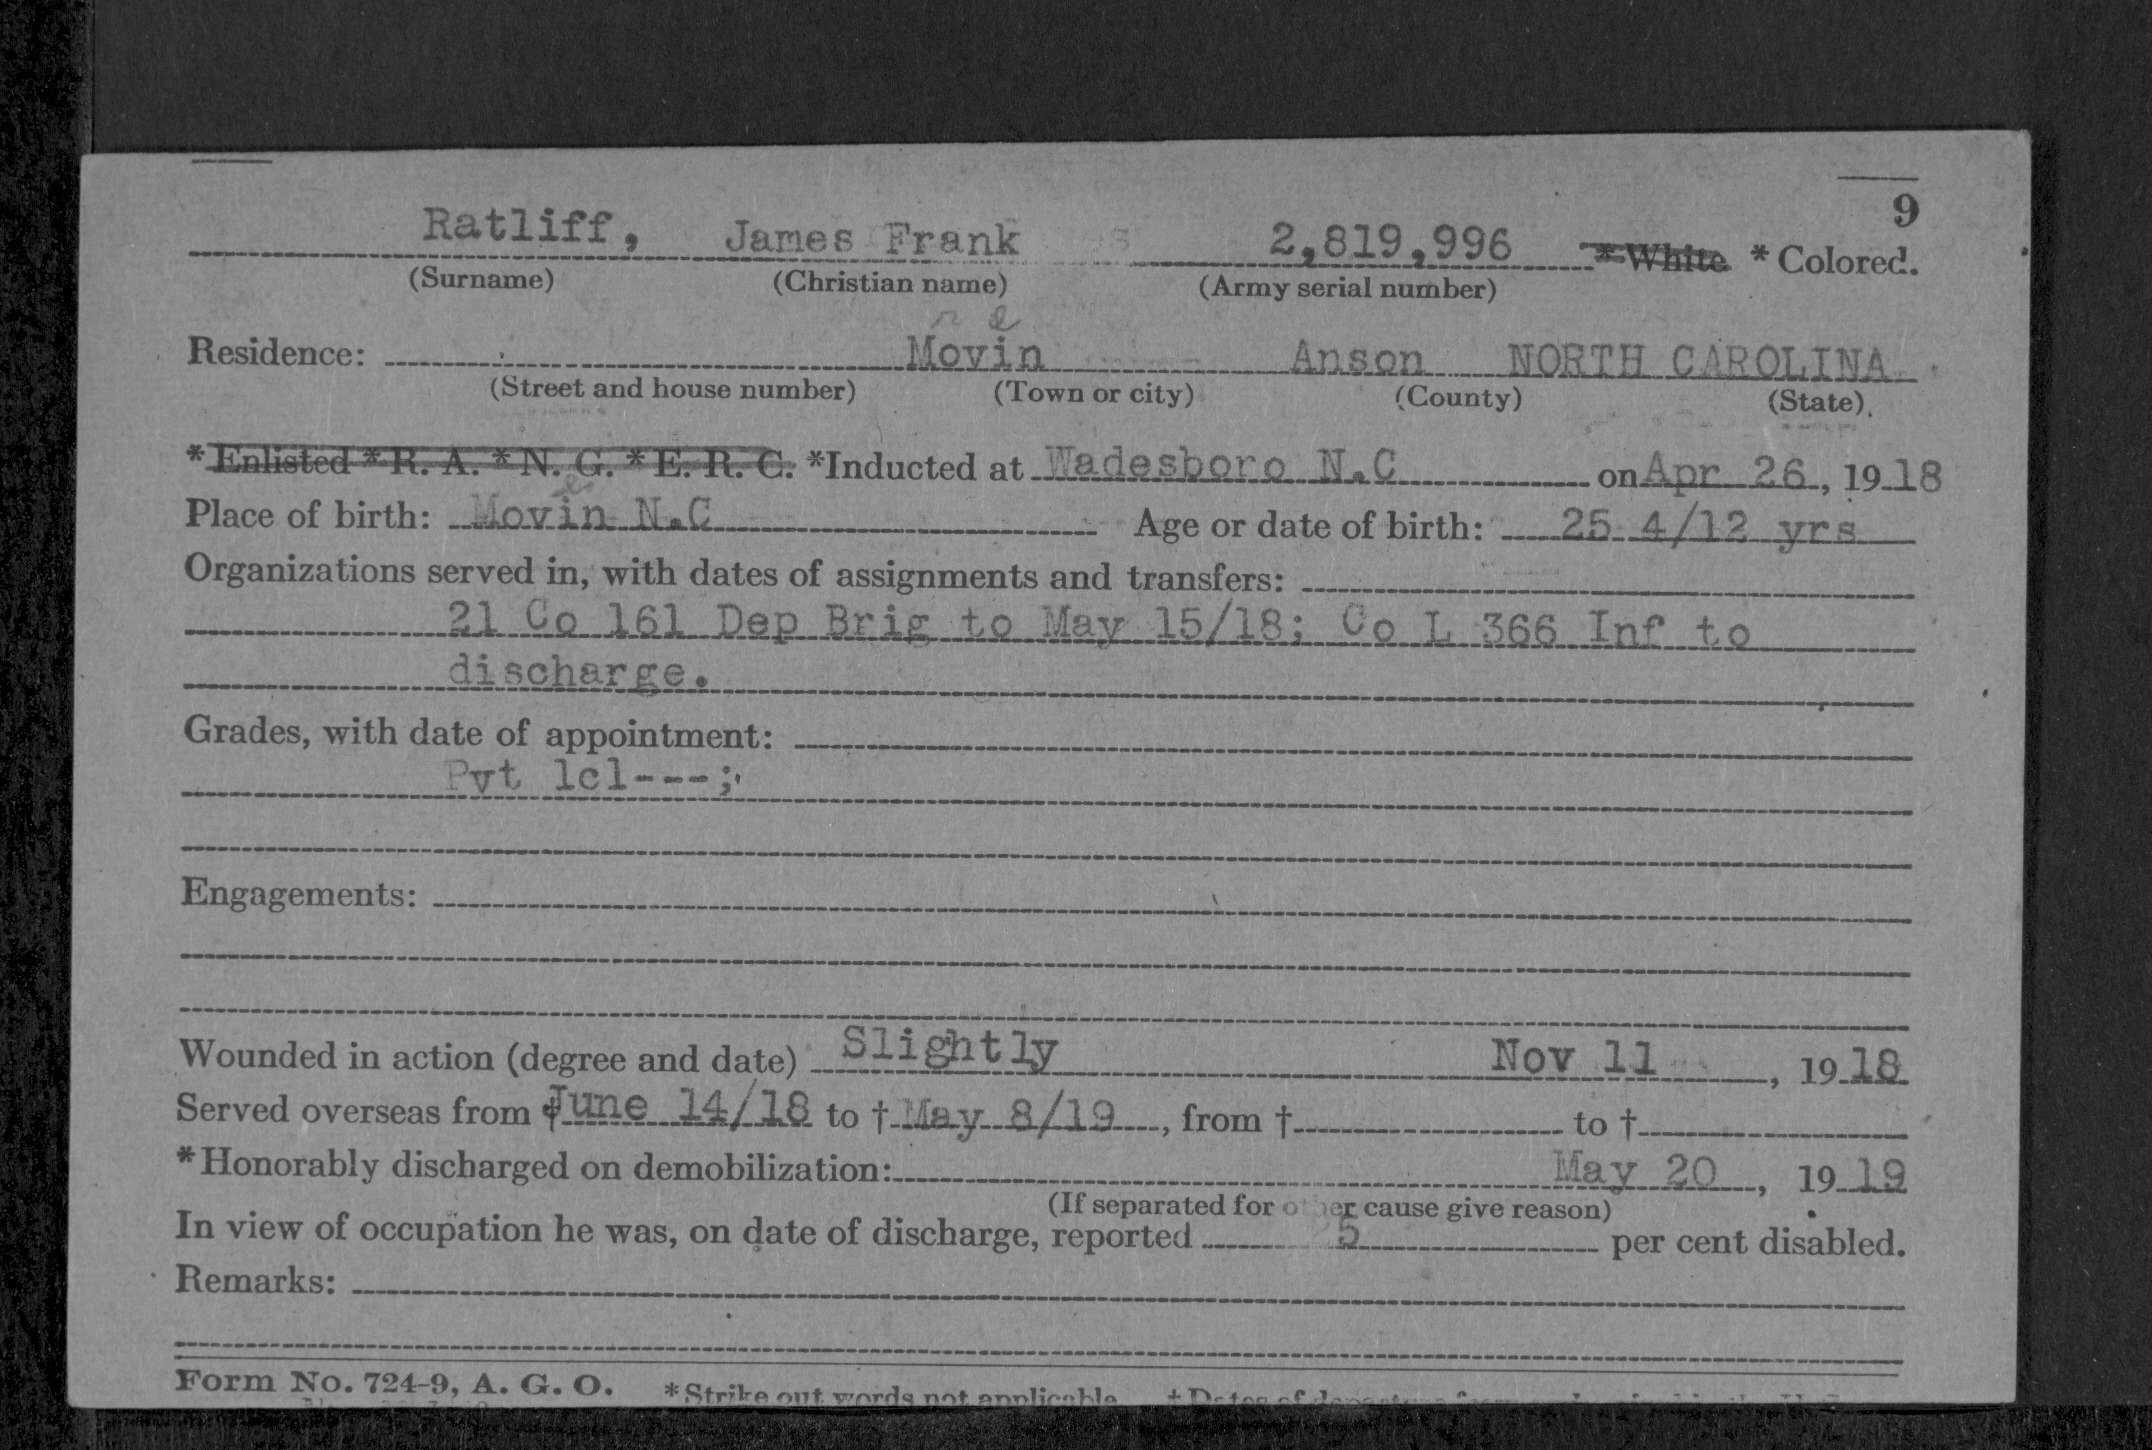 9
Ratliff, James Frank 2,819,996 *White *Colored.
(Surname) (Christian name) (Army serial number)
r e
Residence: Movin Anson NORTH CAROLINA
(Street and house number) (Town or city) (County) (State)
*Enlisted *R. A. *N. G. *E. R. C. *Inducted at Wadesboro N.C on Apr 26, 1918
e
Place of birth: Movin N.C Age or date of birth: 25 4/12 yrs
Organizations served in, with dates of assignments and transfers:
21 Co 161 Dep Brig to May 15/18; Co L 366 Inf to
discharge.
Grades, with date of appointment:
Pvt 1cl---;
Engagements:
Wounded in action (degree and date) Slightly Nov 11, 1918
Served overseas from †June 14/18 to † May 8/19, from † to †
*Honorably discharged on demobilization: May 20, 1919
(If separated for other cause give reason)
In view of occupation he was, on date of discharge, reported 5 per cent disabled.
Remarks:
Form No. 724-9, A. G. O. *Strike out words not applicable. † Dates of